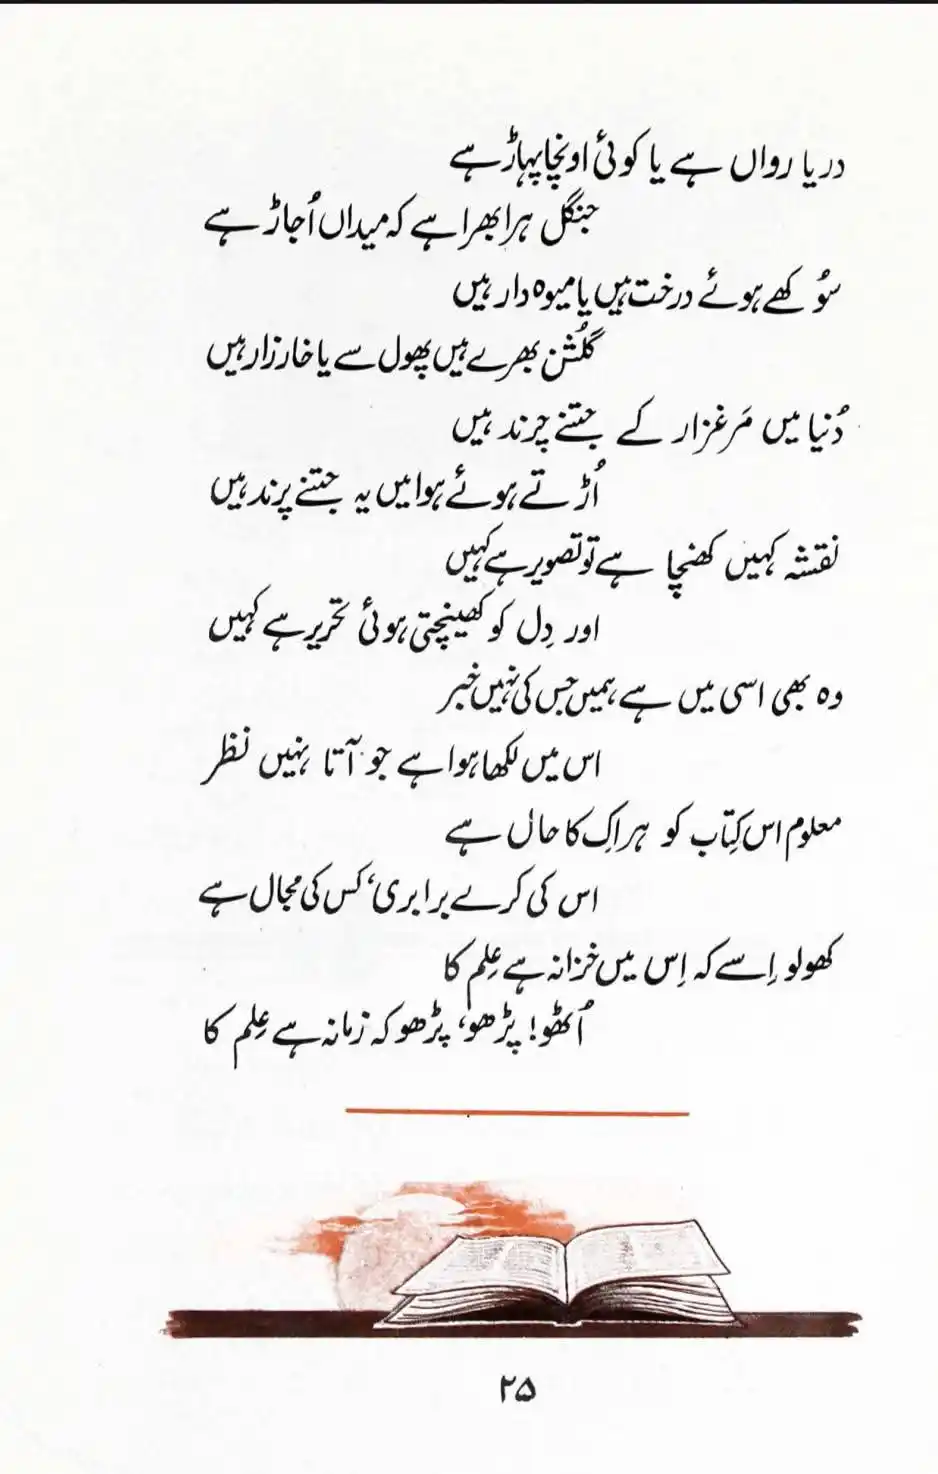 دریا رواں ہے یا کوئی اونچا پہاڑ ہے
جنگل ہرا بھرا ہے کہ میداں اُجاڑ ہے
سُوکھے ہوئے درخت ہیں یا میوہ دار ہیں
گلشن بھرے ہیں پھول سے یا خارزار ہیں
دُنیا میں مَرغزار کے جتنے چرند ہیں
اُڑتے ہوئے ہوا میں یہ جتنے پرند ہیں
نقشہ کہیں کھنچا ہے تو تصویر ہے کہیں
اور دِل کو کھینچتی ہوئی تحریر ہے کہیں
وہ بھی اسی میں ہے ہمیں جس کی نہیں خبر
اس میں لکھا ہوا ہے جو آتا نہیں نظر
معلوم اس کِتاب کو ہر اِک کا حال ہے
اس کی کرے برابری، کس کی مجال ہے
کھولو اِسے کہ اِس میں خزانہ ہے عِلم کا
اُٹھو! پڑھو، پڑھو کہ زمانہ ہے عِلم کا
۲۵